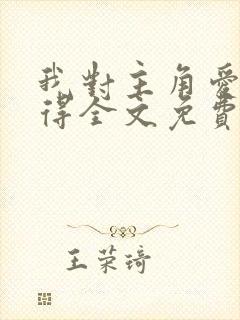 我對主角愛
得全文免費
王荣琦